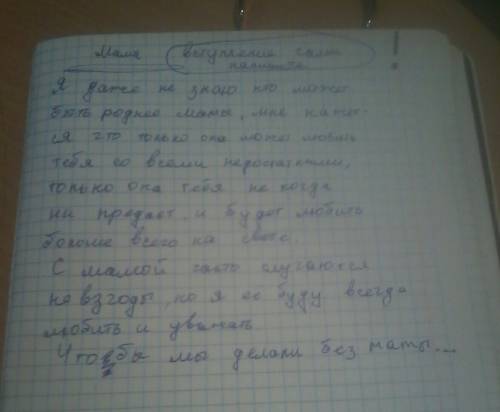 Мама вступление сами напишите !
Я даже не знаю кто может
быть роднее мамы, мне кажет-
ся что только она может любить
тебя со всеми недостатками,
только она тебя не когда
ни предаст и будет любить
больше всего на свете.
С мамой часто случаются
не взгоды, но я её буду всегда
любить и уважать.
Чтобы мы делали без мамы...